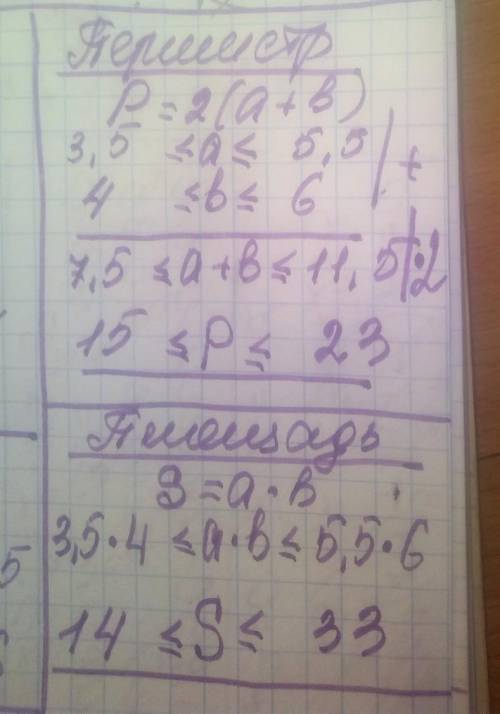 Периметр
P = 2(a+b)
3,5 ≤a≤ 5,5 | +
4 ≤b≤ 6
7,5 ≤a+b≤ 11,5 |·2
15 ≤P≤ 23
Площадь
S = a·b
3,5·4 ≤a·b≤ 5,5·6
14 ≤S≤ 33
5